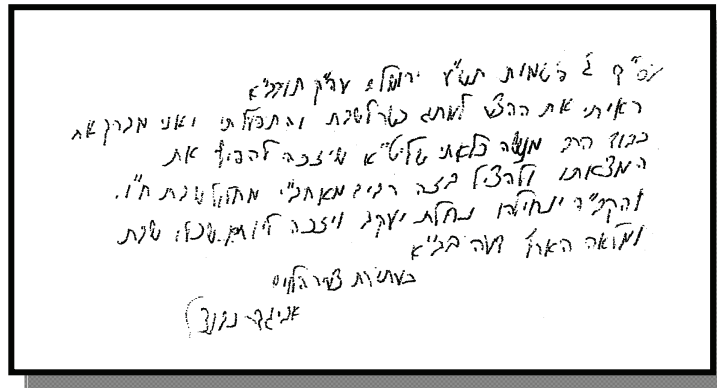 עש"ק ג' לשמות תש"ע ירושלם עה"ק תובב"א
ראיתי את ההצע למתג כשר לשבת והתפעלתי ואני מברך את
כבוד הרב מנשה פלאתי שליט"א שיזכה להפיץ את
המצאתו ולהציל בזה רבים מאחב"י מחלול שבת ח"ו.
והקב"ה ינחילהו נחלת יעקב ויזכה ליום שכלו שבת
ומלאה הארץ דעה בב"א
בעתירת צעיר הלוים
אביגדר נבנצל